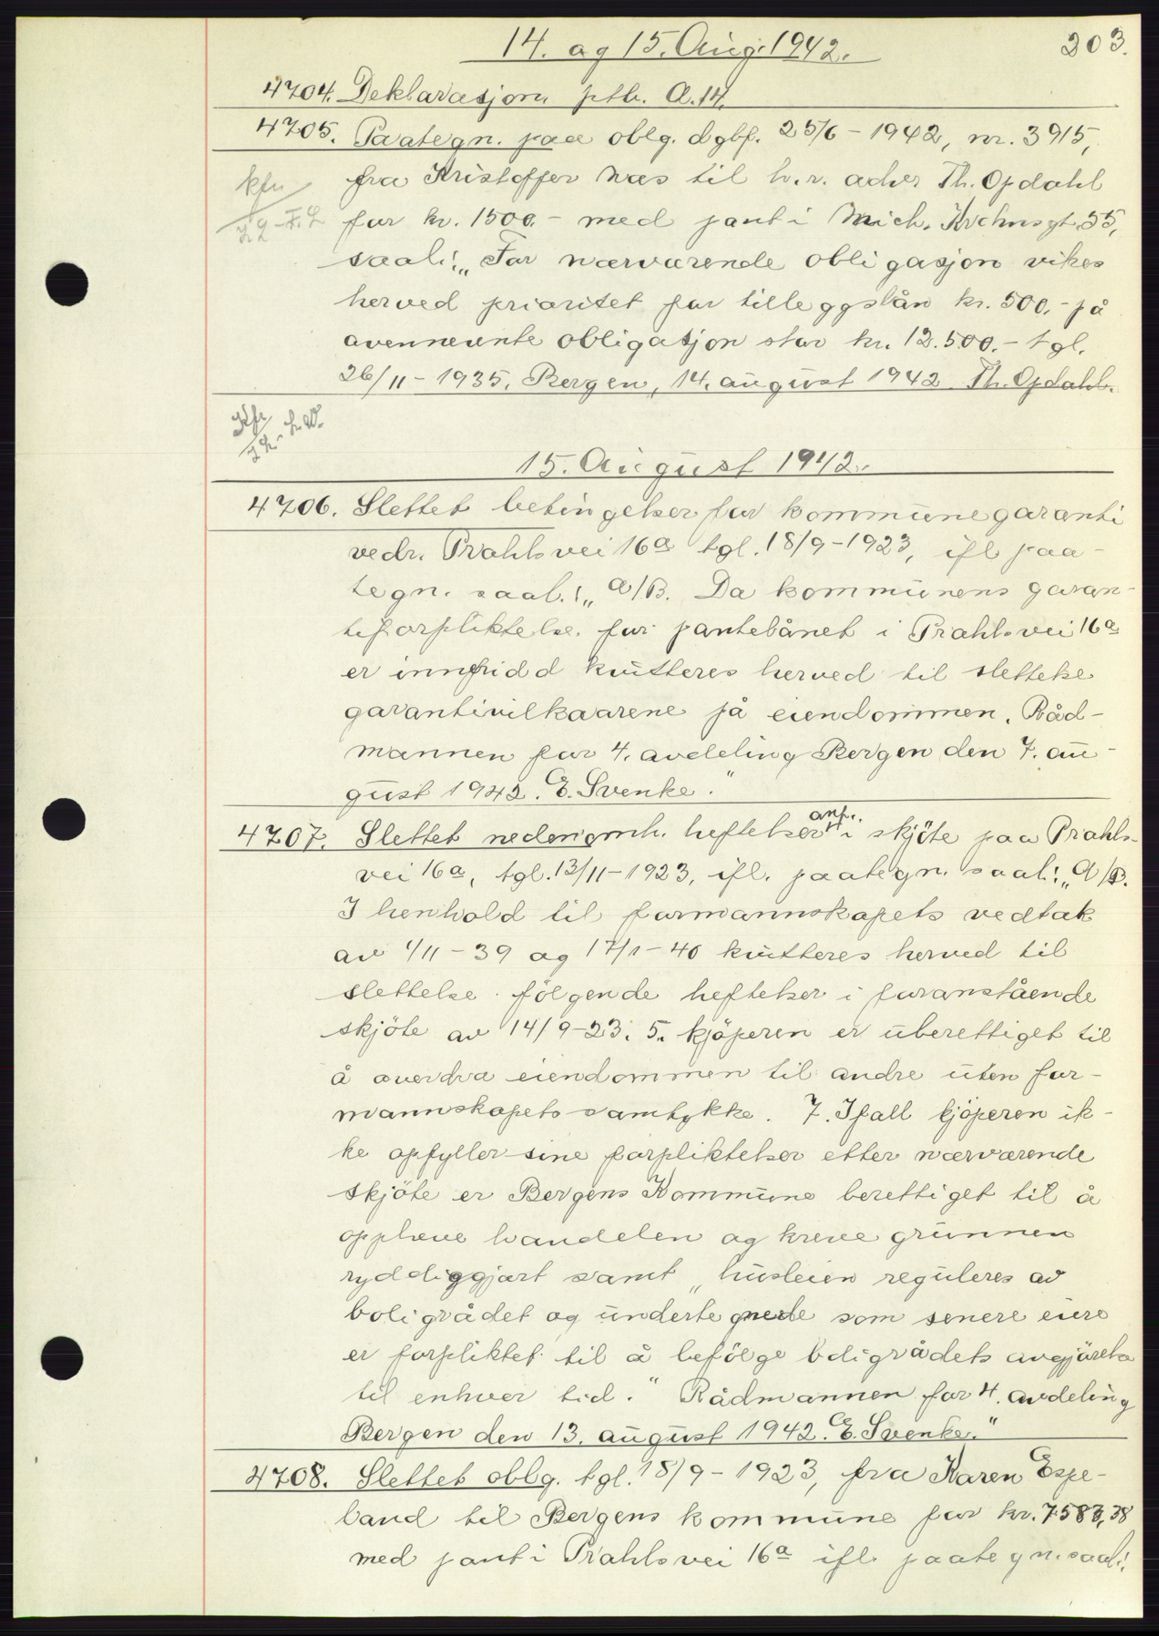 14. og 15. Aug. 1942.
203.
4704. Deklarasjon ptb. A.14.
4705. Paategn. paa oblg. dgbf. 25/6 - 1942, nr. 3915,
fra Kristoffer Næs til h.r. adv. Th. Opdahl
for kr. 1500.- med pant i Mich. Krohnsgt. 55,
saal: „For nærværende obligasjon vikes
herved prioritet for tilleggslån kr. 500.- på
ovennevnte obligasjon stor kr. 12.500.- tgl.
26/11 - 1935. Bergen, 14. august 1942 Th. Opdahl.
15. August 1942.
4706. Slettet betingelser for kommunegaranti
vedr. Prahlsvei 16a tgl. 18/9-1923, ifl paa-
tegn. saal.: „A/B. Da kommunens garan-
tiforpliktelse for pantelånet i Prahlsvei 16a
er innfridd kvitteres herved til slettelse
garantivilkaarene på eiendommen. Råd-
mannen for 4. avdeling Bergen den 7. au-
gust 1942. E. Svenke."
4707. Slettet nedenomh. heftelser anf. i skjöte paa Prahls-
vei 16a, tgl. 13/11-1923, ifl. paategn. saal: „A/B.
I henhold til formannskapets vedtak
av 1/11 - 39 og 17/1 - 40 kvitteres herved til
slettelse følgende heftelser i foranstående
skjöte av 14/9-23. 5. kjöperen er uberettiget til
å overdra eiendommen til andre uten for-
mannskapets samtykke. 7. Ifall kjöperen ik-
ke opfyller sine forpliktelser etter nærværende
skjöte er Bergens Kommune berettiget til å
ophæve handelen og kreve grunnen
ryddiggjort samt „husleien reguleres av
boligrådet og undertegnede som senere eiere
er forpliktet til å befölge boligrådets avgjörelse
til enhver tid." Rådmannen for 4. avdeling
Bergen den 13. august 1942. E. Svenke."
4708. Slettet oblg. tgl. 18/9 - 1923, fra Karen Espe-
land til Bergens kommune for kr. 7583,38
med pant i Prahlsvei 16a ifl. paategn. saal: